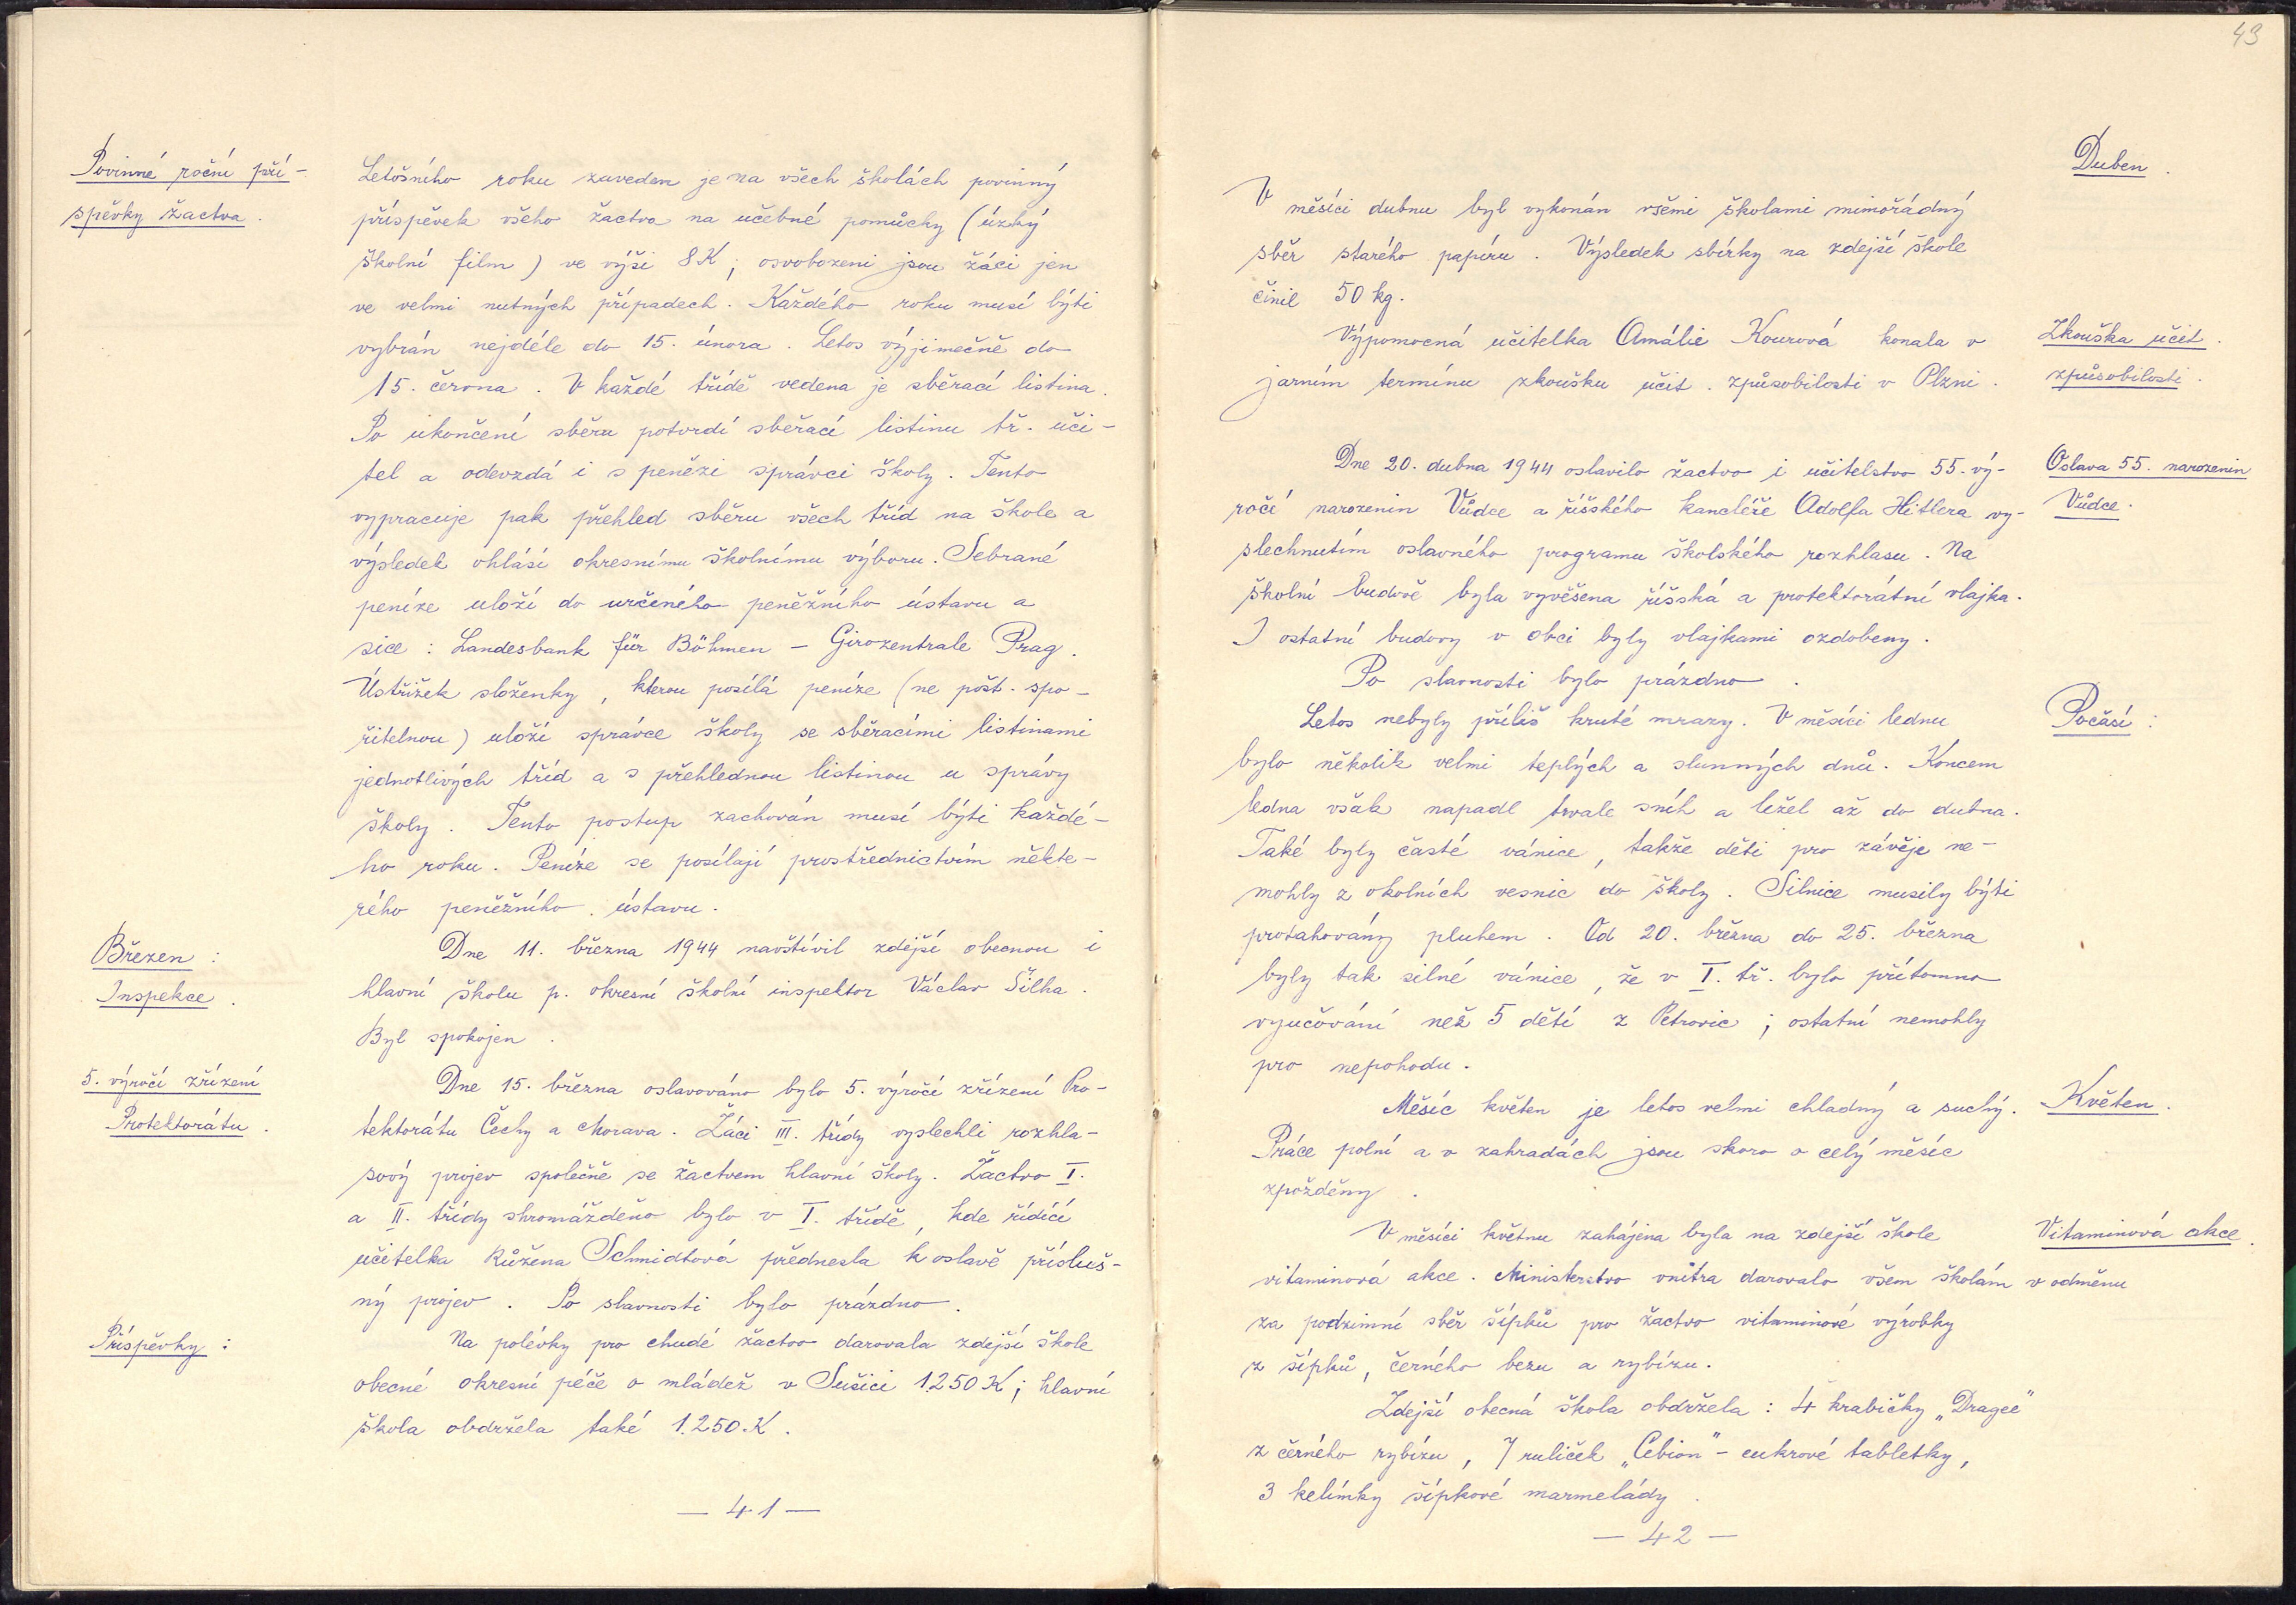 Povinné roční pří-
spěvky žactva.
Letošního roku zaveden je na všech školách povinný
příspěvek všeho žactva na učebné pomůcky (úzký
školní film) ve výši 8 K; osvobozeni jsou žáci jen
ve velmi nutných případech. Každého roku musí býti
vybrán nejdéle do 15. února. Letos výjimečně do
15. června. V každé třídě vedena je sběrací listina.
Po ukončení sběru potvrdí sběrací listinu tř. uči-
tel a odevzdá i s penězi správci školy. Tento
vypracuje pak přehled sběru všech tříd na škole a
výsledek ohlásí okresnímu školnímu výboru. Sebrané
peníze uloží do určeného peněžního ústavu a
sice: Landesbank für Böhmen – Girozentrale Prag.
Ústřižek složenky, kterou posílá peníze (ne pošt. spo-
řitelnou) uloží správce školy se sběracími listinami
jednotlivých tříd a s přehlednou listinou u správy
školy. Tento postup zachován musí býti každé-
ho roku. Peníze se posílají prostřednictvím někte-
rého peněžního ústavu.
Březen:
Inspekce.
Dne 11. března 1944 navštívil zdejší obecnou i
hlavní školu p. okresní školní inspektor Václav Šilha.
Byl spokojen.
5. výročí zřízení
Protektorátu.
Dne 15. března oslavováno bylo 5. výročí zřízení Pro-
tektorátu Čechy a Morava. Žáci III. třídy vyslechli rozhla-
sový projev společně se žactvem hlavní školy. Žactvo I.
a II. třídy shromážděno bylo v I. třídě, kde řídící
učitelka Růžena Schmidtová přednesla k oslavě přísluš-
ný projev. Po slavnosti bylo prázdno.
Příspěvky:
Na polévky pro chudé žactvo darovala zdejší škole
obecné okresní péče o mládež v Sušici 1250 K; hlavní
škola obdržela také 1.250.K.
— 41 —
43
Duben.
V měsíci dubnu byl vykonán všemi školami mimořádný
sběr starého papíru. Výsledek sbírky na zdejší škole
činil 50 kg.
Zkouška učit.
způsobilosti.
Výpomocná učitelka Amálie Kourová konala v
jarním termínu zkoušku učit. způsobilosti v Plzni.
Oslava 55. narozenin
Vůdce.
Dne 20. dubna 1944 oslavilo žactvo i učitelstvo 55. vý-
ročí narozenin Vůdce a říšského kancléře Adolfa Hitlera vy-
slechnutím oslavného programu školského rozhlasu. Na
školní budově byla vyvěšena říšská a protektorátní vlajka.
I ostatní budovy v obci byly vlajkami ozdobeny.
Po slavnosti bylo prázdno.
Počasí:
Letos nebyly příliš kruté mrazy. V měsíci lednu
bylo několik velmi teplých a slunných dnů. Koncem
ledna však napadl trvale sníh a ležel až do dubna.
Také byly časté vánice, takže děti pro závěje ne-
mohly z okolních vesnic do školy. Silnice musily býti
protahovány pluhem. Od 20. března do 25. března
byly tak silné vánice, že v I. tř. bylo přítomno
vyučování než 5 dětí z Petrovic; ostatní nemohly
pro nepohodu.
Květen.
Měsíc květen je letos velmi chladný a suchý.
Práce polní a v zahradách jsou skoro o celý měsíc
zpožděny.
Vitaminová akce.
V měsíci květnu zahájena byla na zdejší škole
vitaminová akce. Ministerstvo vnitra darovalo všem školám v odměnu
za podzimní sběr šípků pro žactvo vitaminové výrobky
z šípků, černého bezu a rybízu.
Zdejší obecná škola obdržela: 4 krabičky „Drageé"
z černého rybízu, 7 ruliček „Cebion" – cukrové tabletky,
3 kelímky šípkové marmelády.
— 42 —